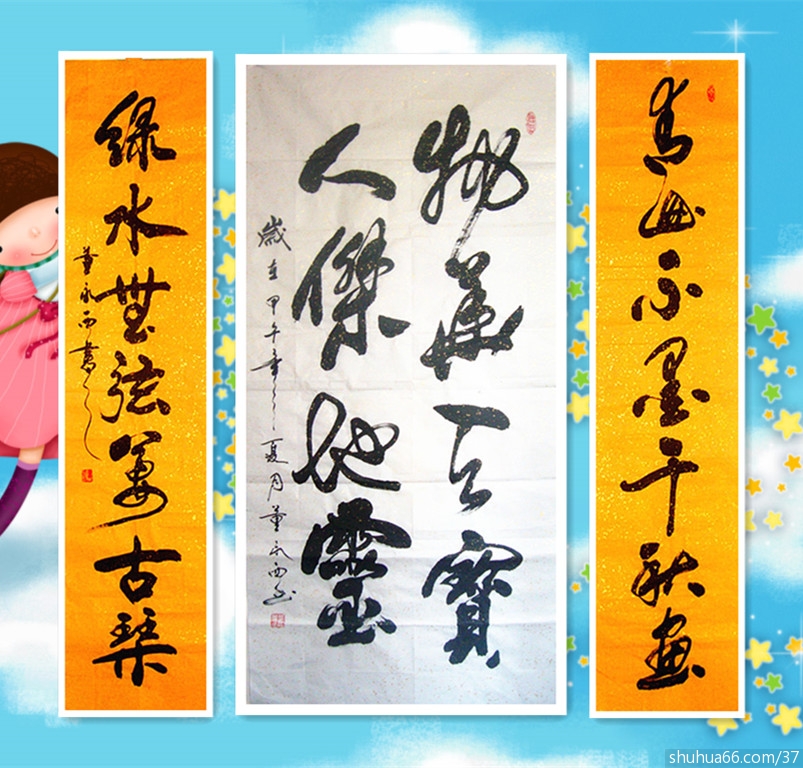 青山不墨千秋畫
物華天寶
人傑地靈
歲在甲午年之夏月董永西書
綠水無弦萬古琴
董永西書之
shuhua66.com/37